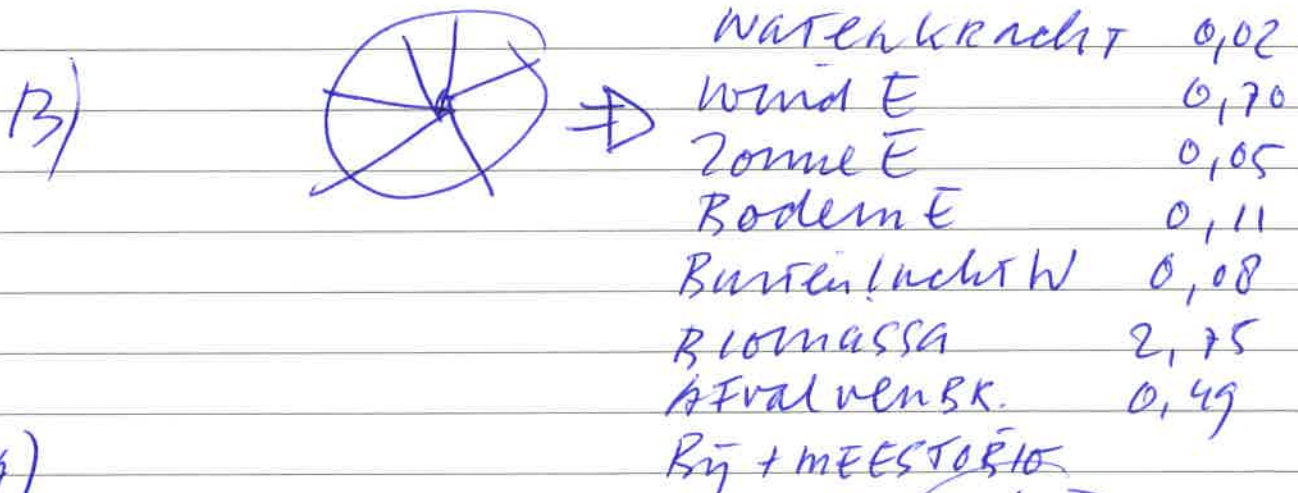 Waterkracht 0,02
B) ⇒ Wind E 0,70
Zonne E 0,05
Bodem E 0,11
Buitenlucht W 0,08
Biomassa 2,75
AFvalverBR. 0,49
Bij + MEESTOB10